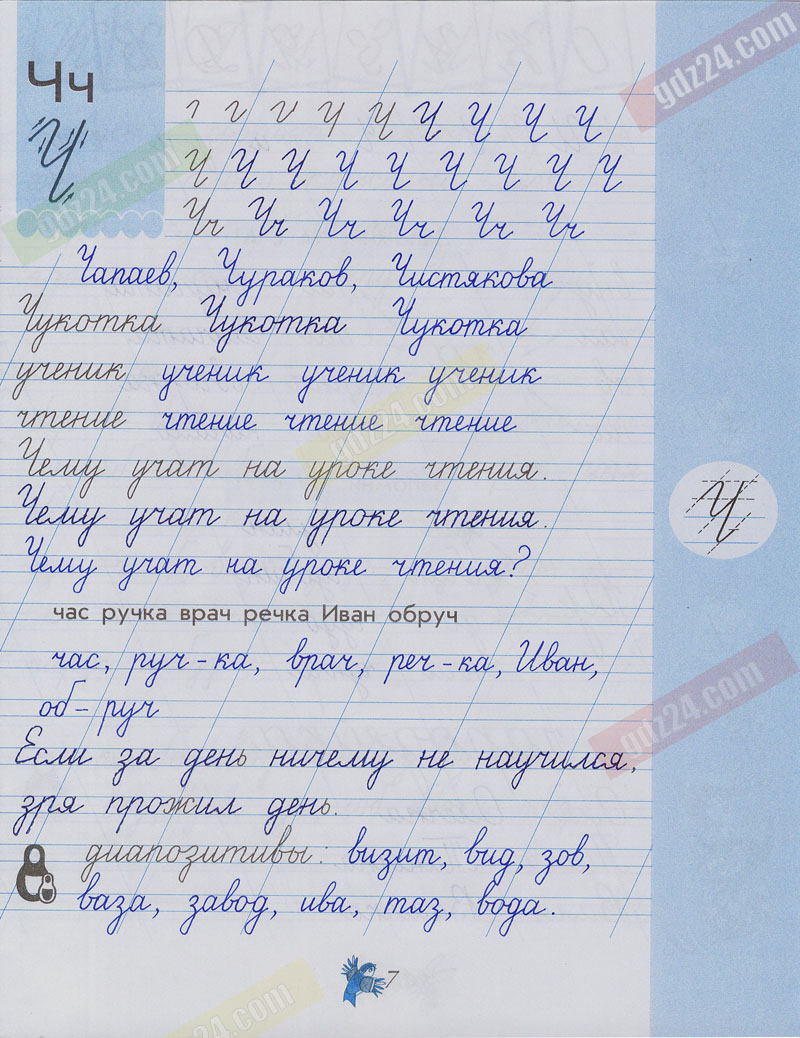 Чч
gdz24.com
Ч
г г ν Ч Ч Ч Ч Ч Ч
Ч Ч Ч Ч Ч Ч Ч Ч Ч
Чч Чч Чч Чч Чч Чч
gdz24.com
Чапаев, Чураков, Чистякова
Чукотка Чукотка Чукотка
ученик ученик ученик ученик
чтение чтение чтение чтение
gdz24.com
Чему учат на уроке чтения.
Чему учат на уроке чтения.
Ч
Чему учат на уроке чтения?
час ручка врач речка Иван обруч
час, руч-ка, врач, реч-ка, Иван,
об-руч
gdz24.com
Если за день ничему не научился,
зря прожил день.
диапозитивы: визит, вид, зов,
ваза, завод, ива, таз, вода.
7
z24.com